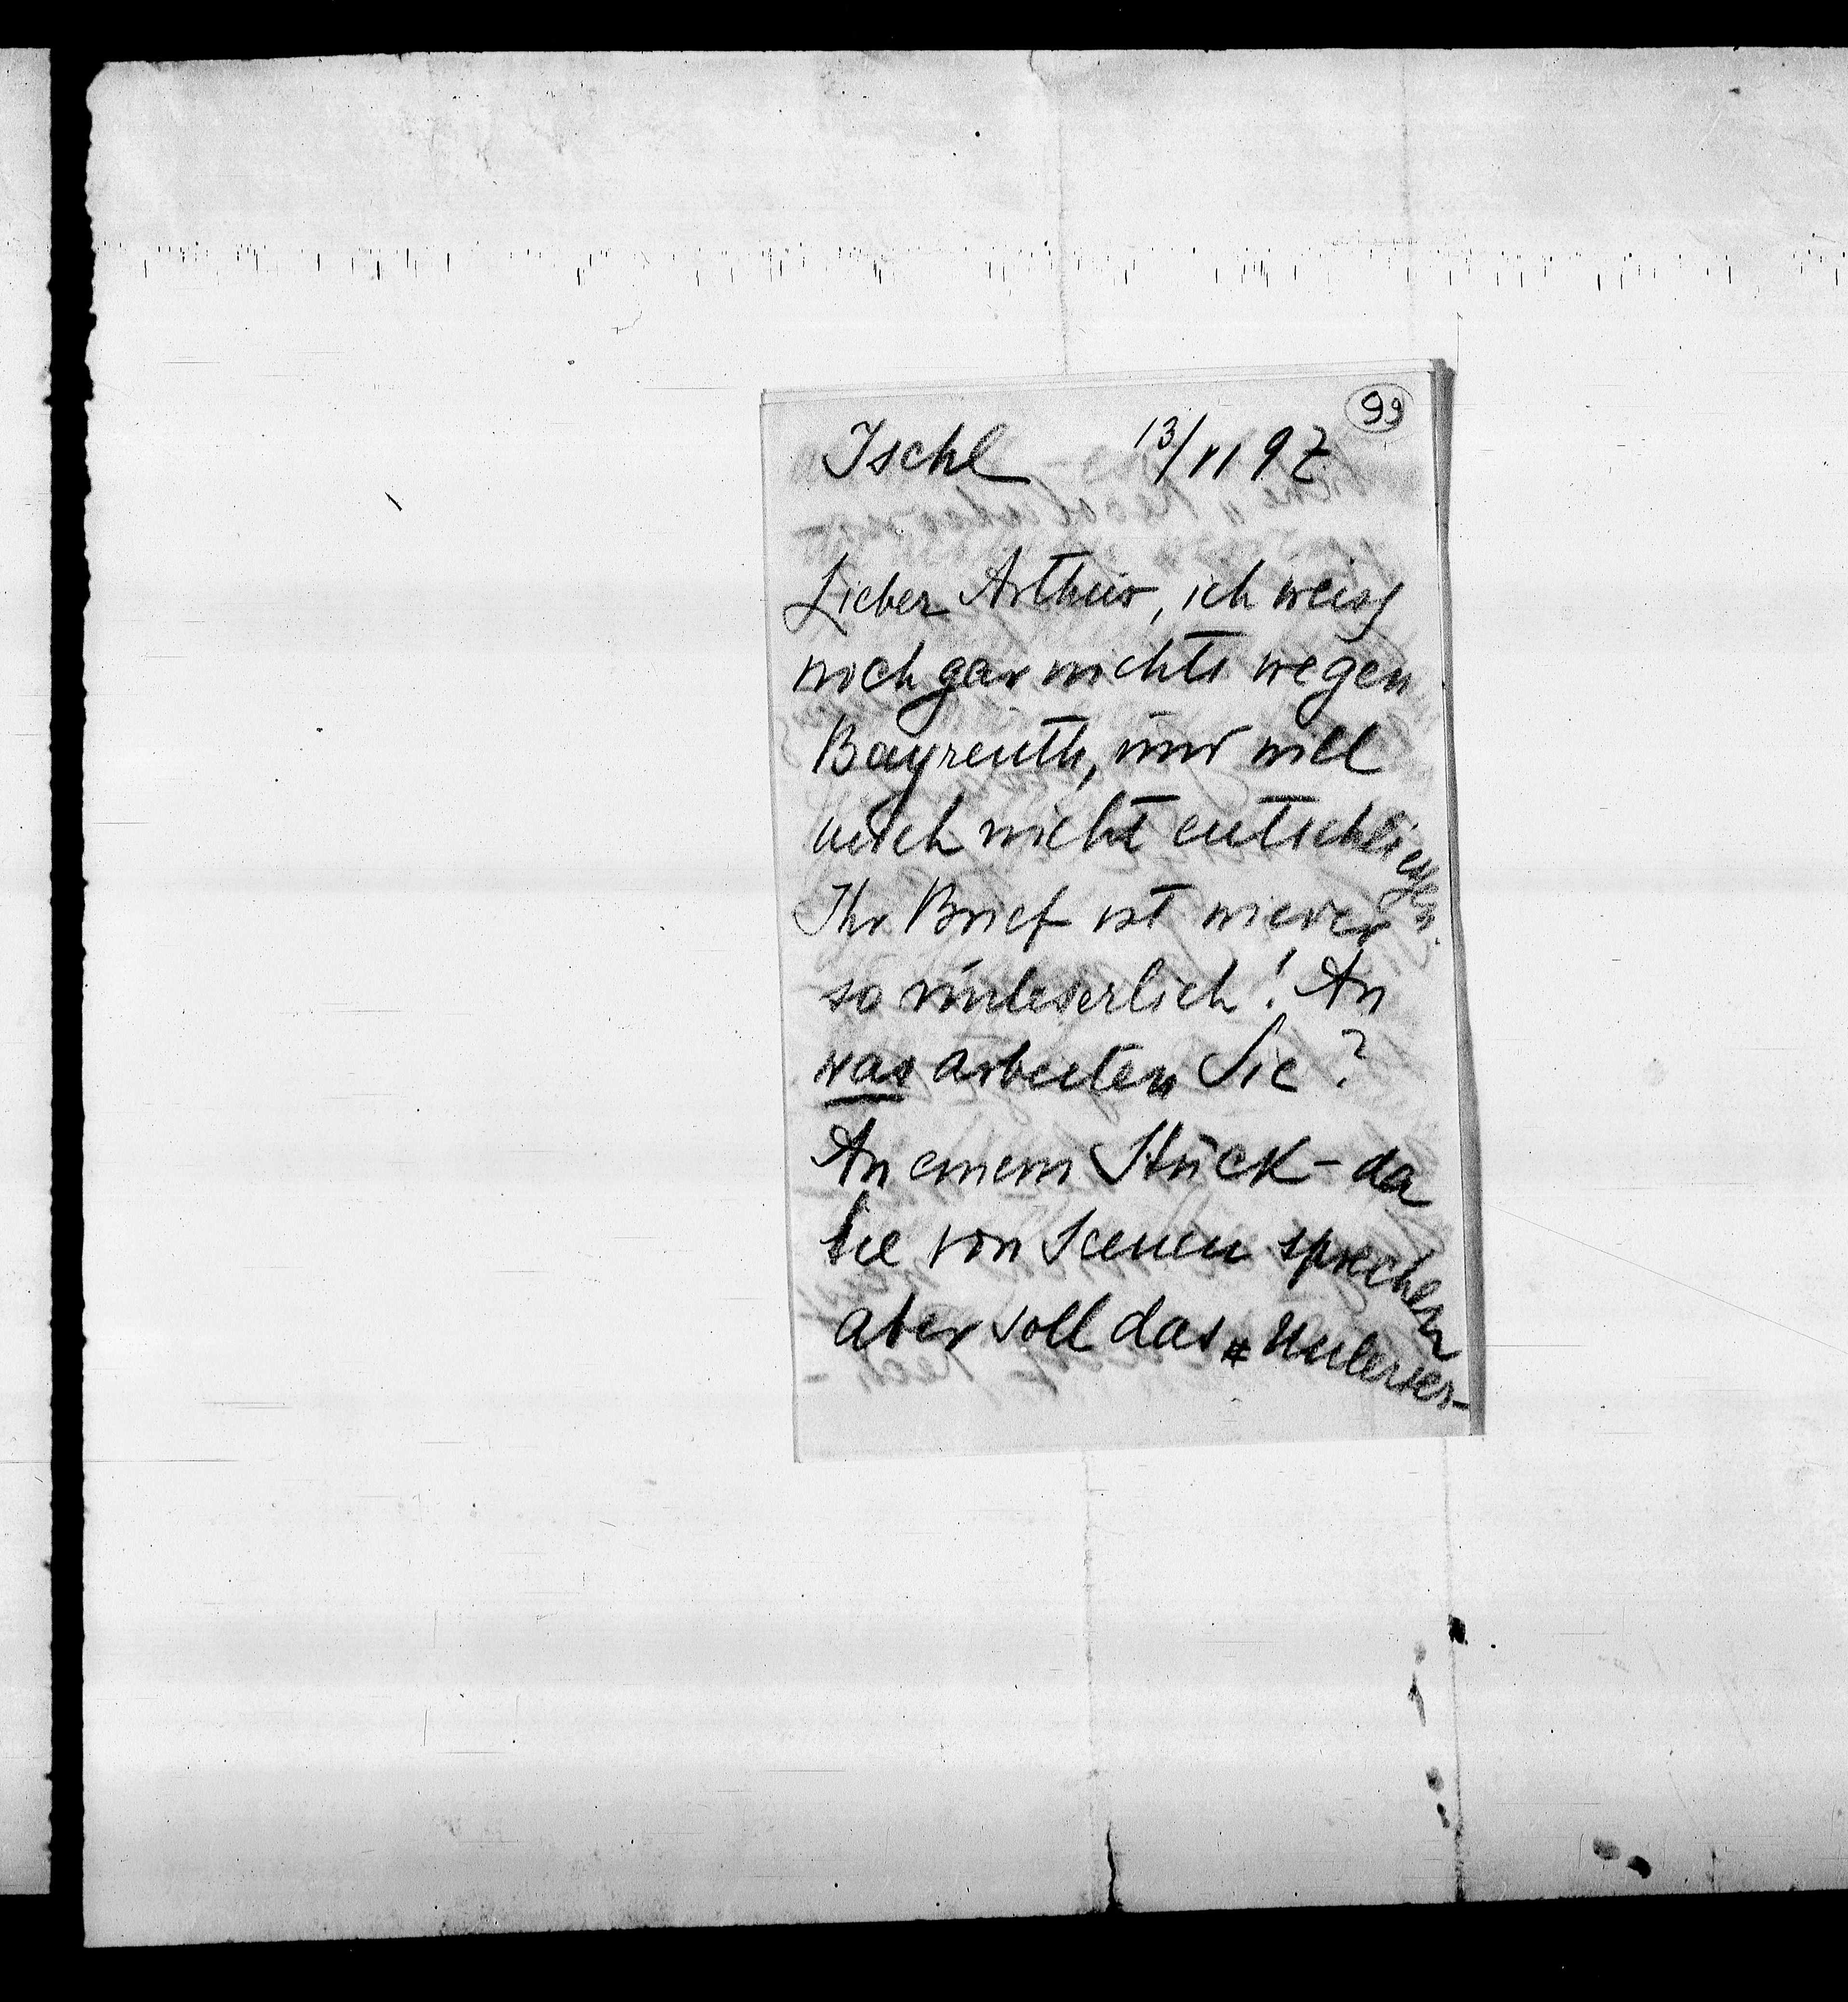 99
Ischl 13/VI 97
Lieber Arthur, ich weiss
noch gar nichts wegen
Bayreuth, und will
mich nicht entschliessen.
Ihr Brief ist wieder
so unleserlich! An
was arbeiten Sie?
An einem Stück - da
Sie von Scenen sprechen
aber soll das